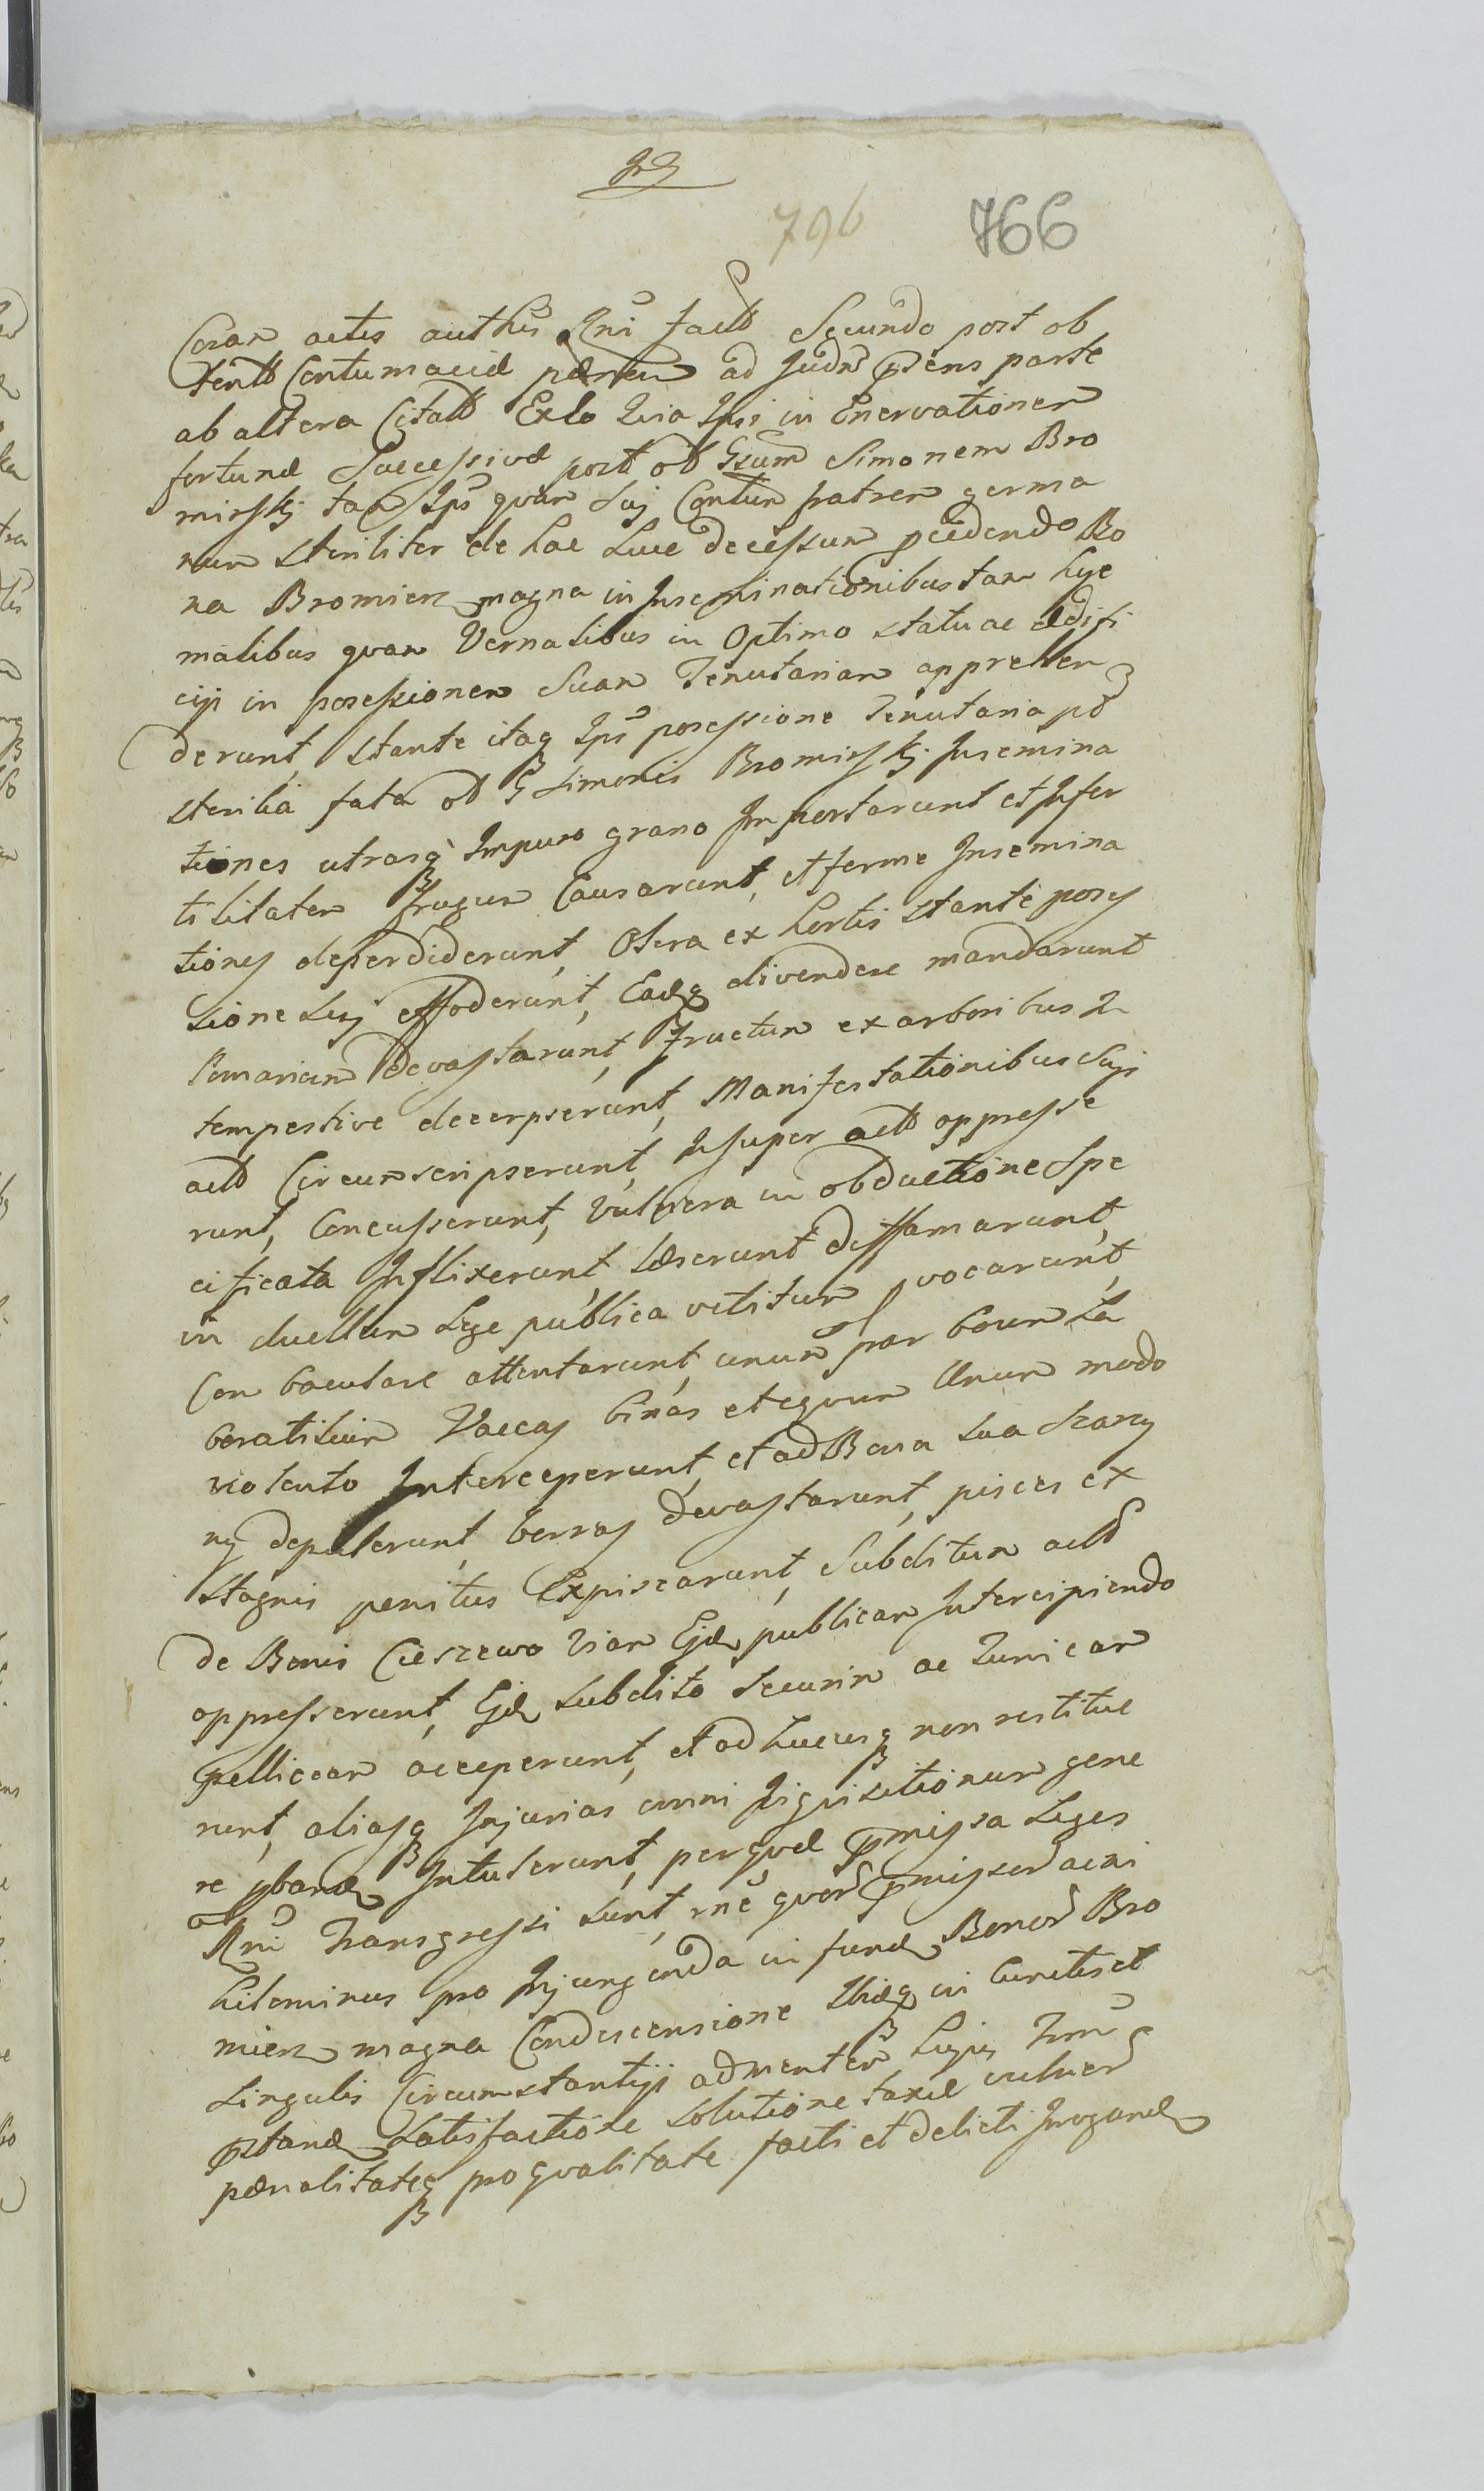 796 766
Coran actis authis Rni fact Secundo post ob
tent Contumaciæ pænan ad Judm pns parte
ab altera Citatt Exlo Quia Ipsi in Enervationen
fortunæ Successivæ post ob Gsum Simonem Bro
mirskj tan Ips quan Suj Contun fratren germa
nun steriliter de hac Luce decessun pcedendo Bo
na Bromierz magna in Inseminationibus tan hye
malibus quan Vernalibus in Optimo statu ac ædifi
cijs in possessionen Suan Tenutarian apprehen
derunt, stante itaq Ips possessione Tenutaria po
sterilia fata ol G Simonis Bromirskj Insemina
tiones utrasq Impuro grano Importarunt et Infer
tilitaten frugun Causarunt, et ferme Insemina
tiones deperdiderunt, Olera ex hortis stante posse
sione Suj effoderunt, Eaq divendere mandarunt
Pomarium devastarunt, Fructun ex arboribus In
tempestive decerpserunt, Manifestationibus Sujs
act Circumscripserunt, Insuper act oppresse
runt, Concusserunt, Vulnera in obductione Spe
cificata Inflixerunt, Læserunt diffamarunt,
in duellun Lege publica vetitun pvocarunt,
Con baculare attentarunt, unum par boun La
boratiliun Vaccas binas et equun Unun modo
violento Interceperunt, et ad Bona sua Szarzy
ny depulerunt, borras devastarunt, pisces ex
stagnis penitus Expiscarunt, Subditun act
de Bonis Cieszewo Vian Ejd publican Intercipiendo
oppresserunt, Ejd subdito securin ac Tunican
pelliccan acceperunt, et adhucusq non restitue
runt, aliasq Injurias omni Inquisitionun gene
re pband Intulerunt, perquæ pmissa Leges
Rni Transgressi sunt, rne quor pmissor acni
hilominus pro Injungenda in fund Bonor Bro
mierz magna Condescensione Ibidq in Cunctis et
singulis Circumstantijs ad menten Legis
pstand satisfactione solutione taxæ vulner
pænalitateq pro qualitate facti et delicti Irrogand